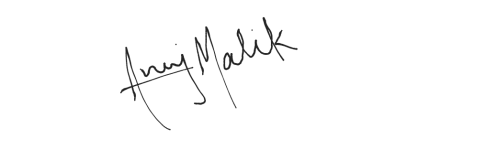 Anuj Malik